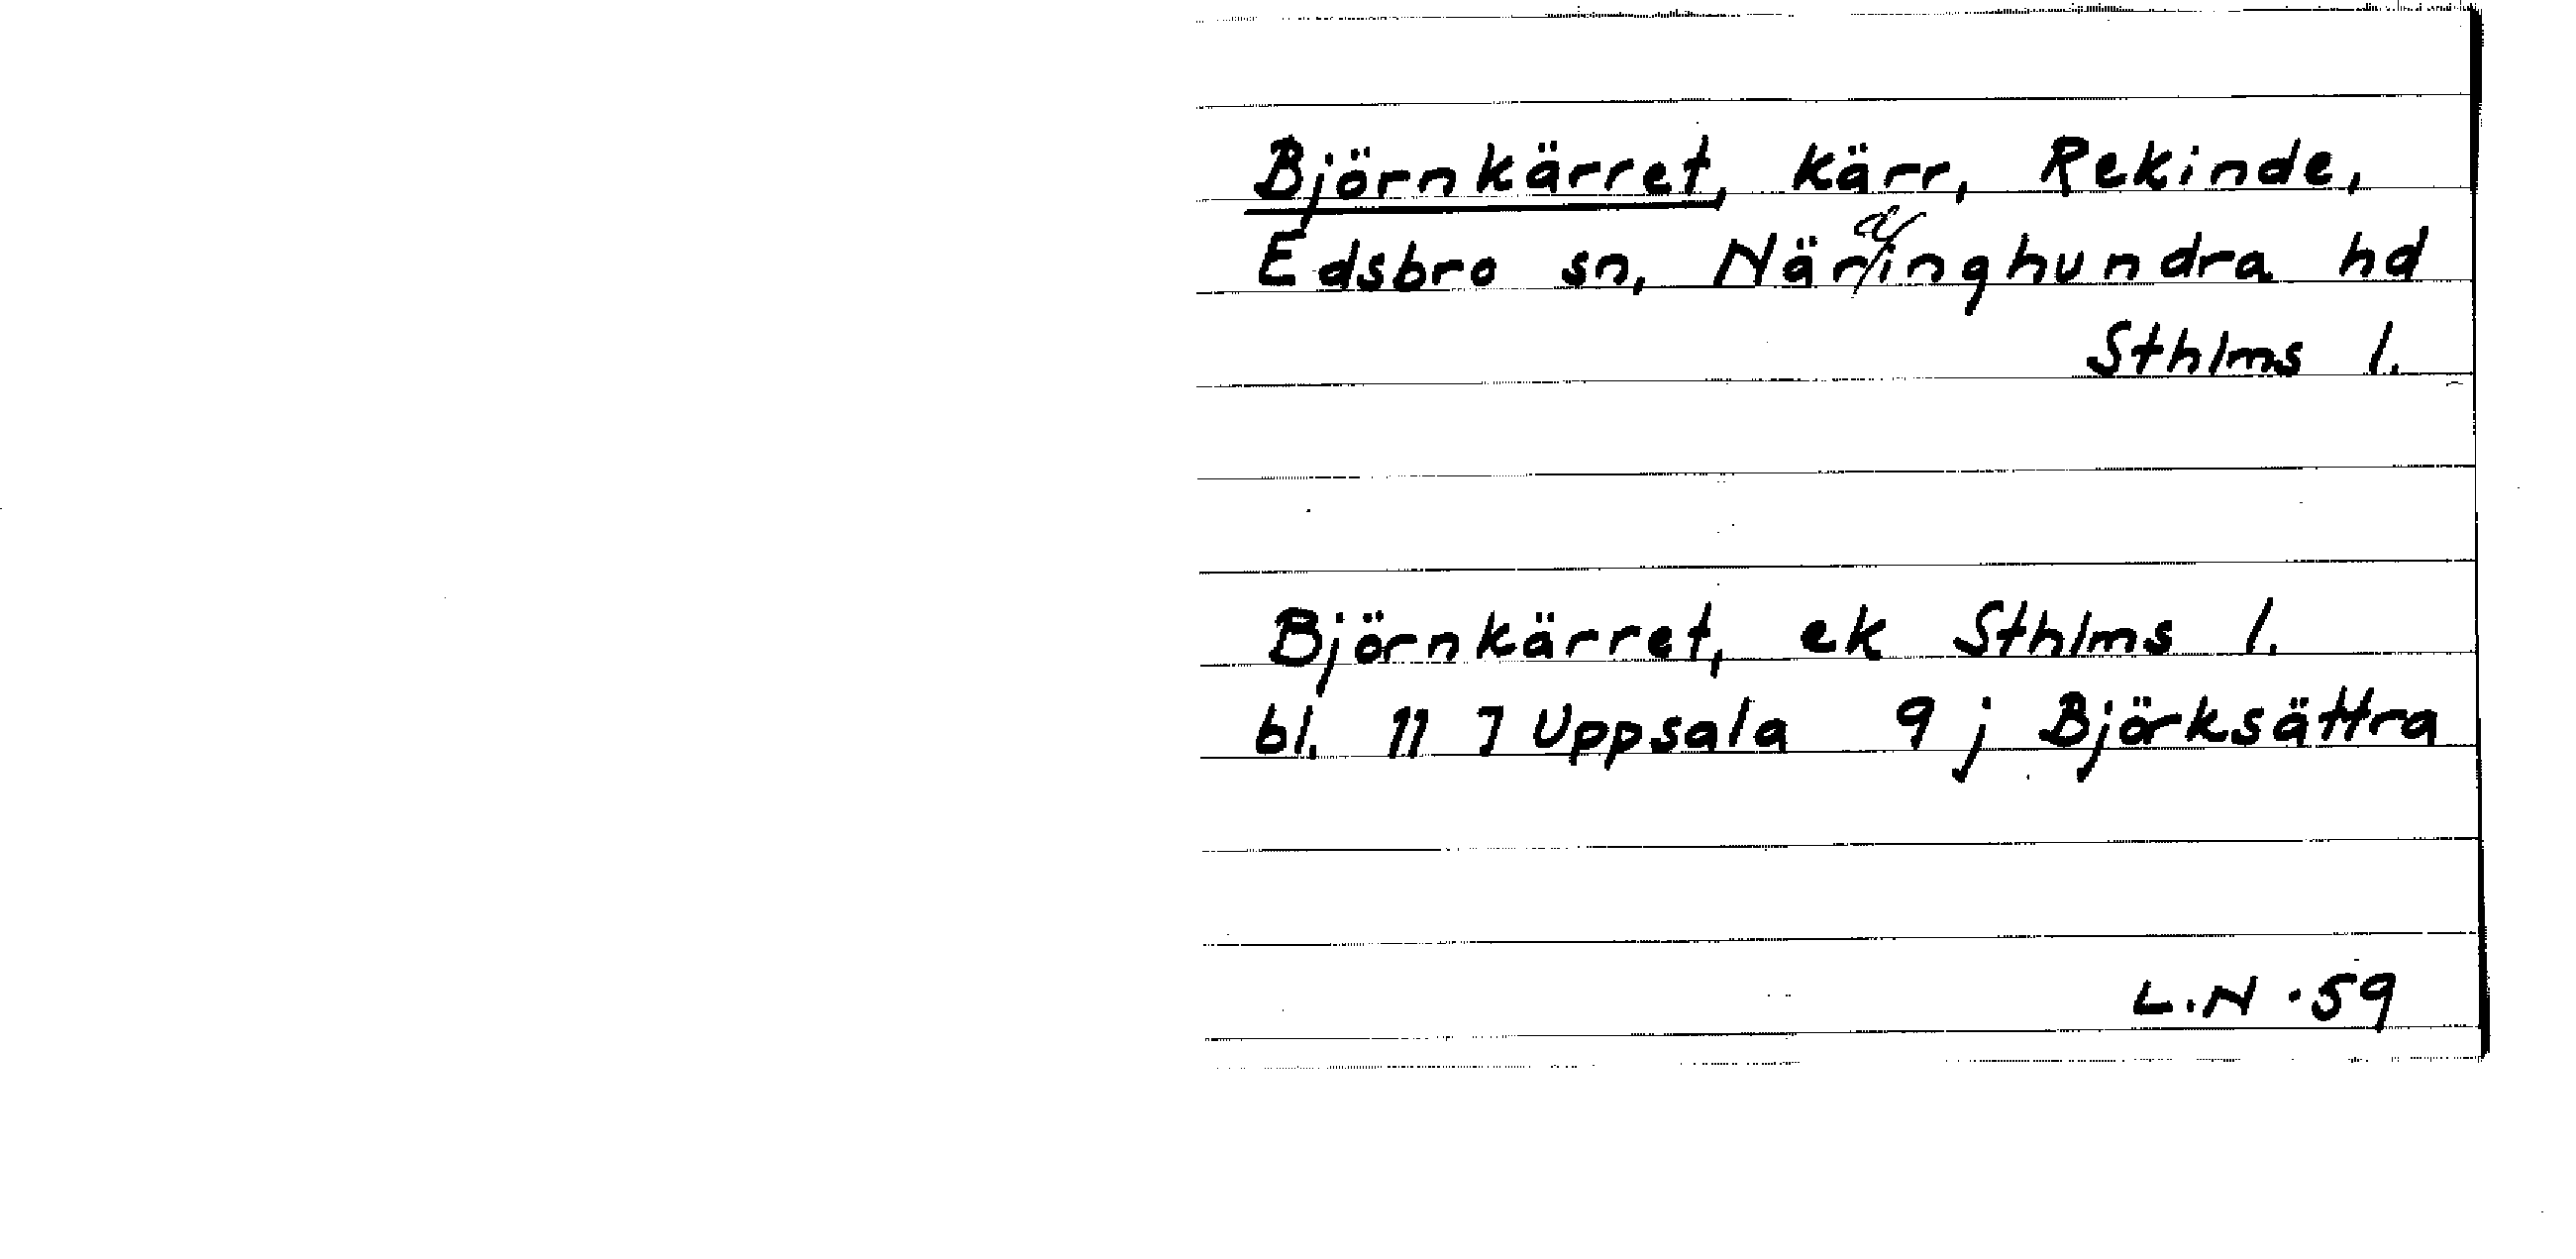 Björnkärret, kärr, Rekinde,
Edsbro sn, Närdinghundra hd
Sthlms l.
Björnkärret, ek Sthlms l.
bl. 11 I Uppsala 9 j Björksättra
L.N. 59